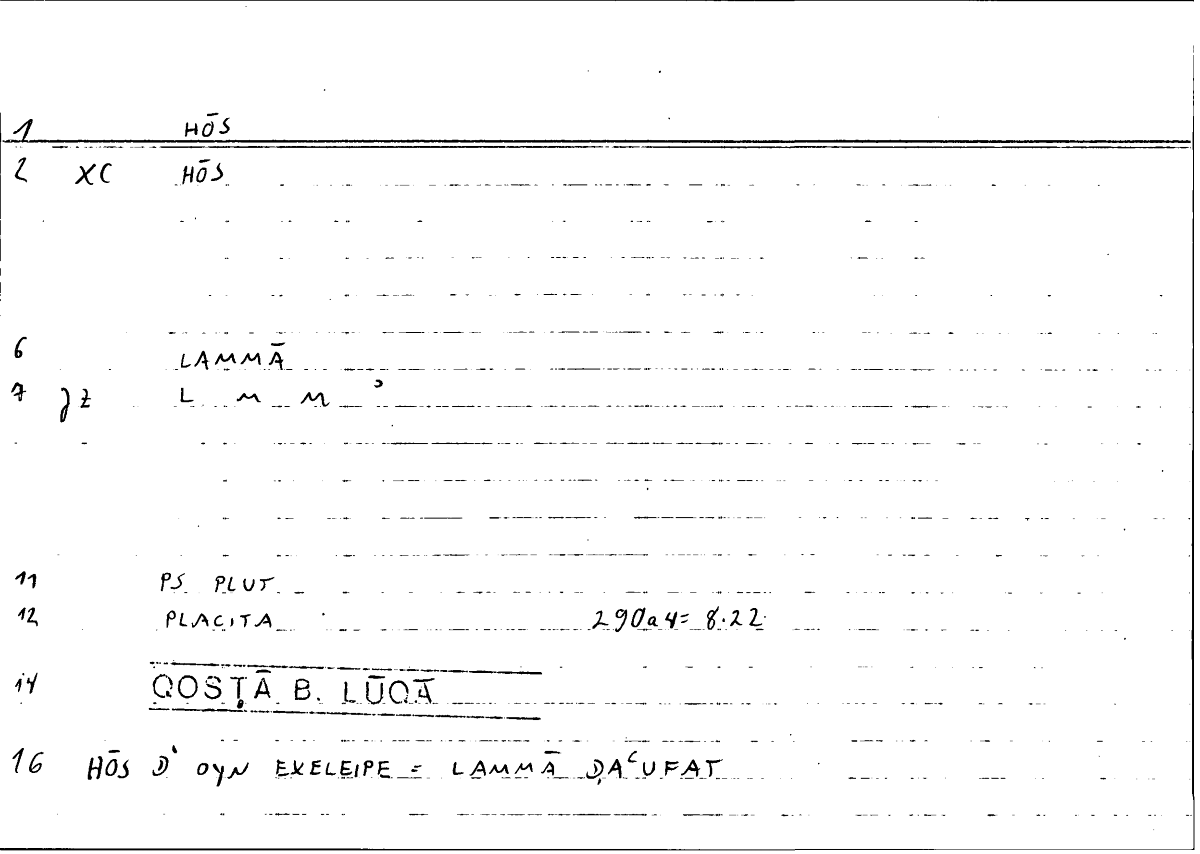 1 HŌS
2 XC HŌS
6 LAMMĀ
7 JZ L M M ʾ
11 PS PLUT
12 PLACITA 290a4= 8.22
14 QOSṬĀ B. LŪQĀ
16 HŌS D' OYN EXELEIPE = LAMMĀ ḌAʿUFAT